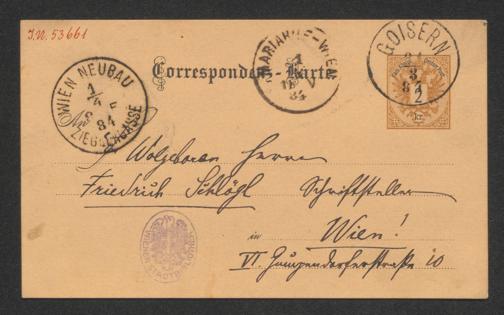 I.N. 53661
GOISERN
31
3
84
MARIAHILF-WIEN
1
IV
84
WIEN NEUBAU
1/4
84
ZIEGLERGASSE
Correspondenz-Karte
2
kr
Wolgeboren Herrn
Friedrich Schlögl Schriftsteller
in Wien!
VI. Gumpendorferstraße 10